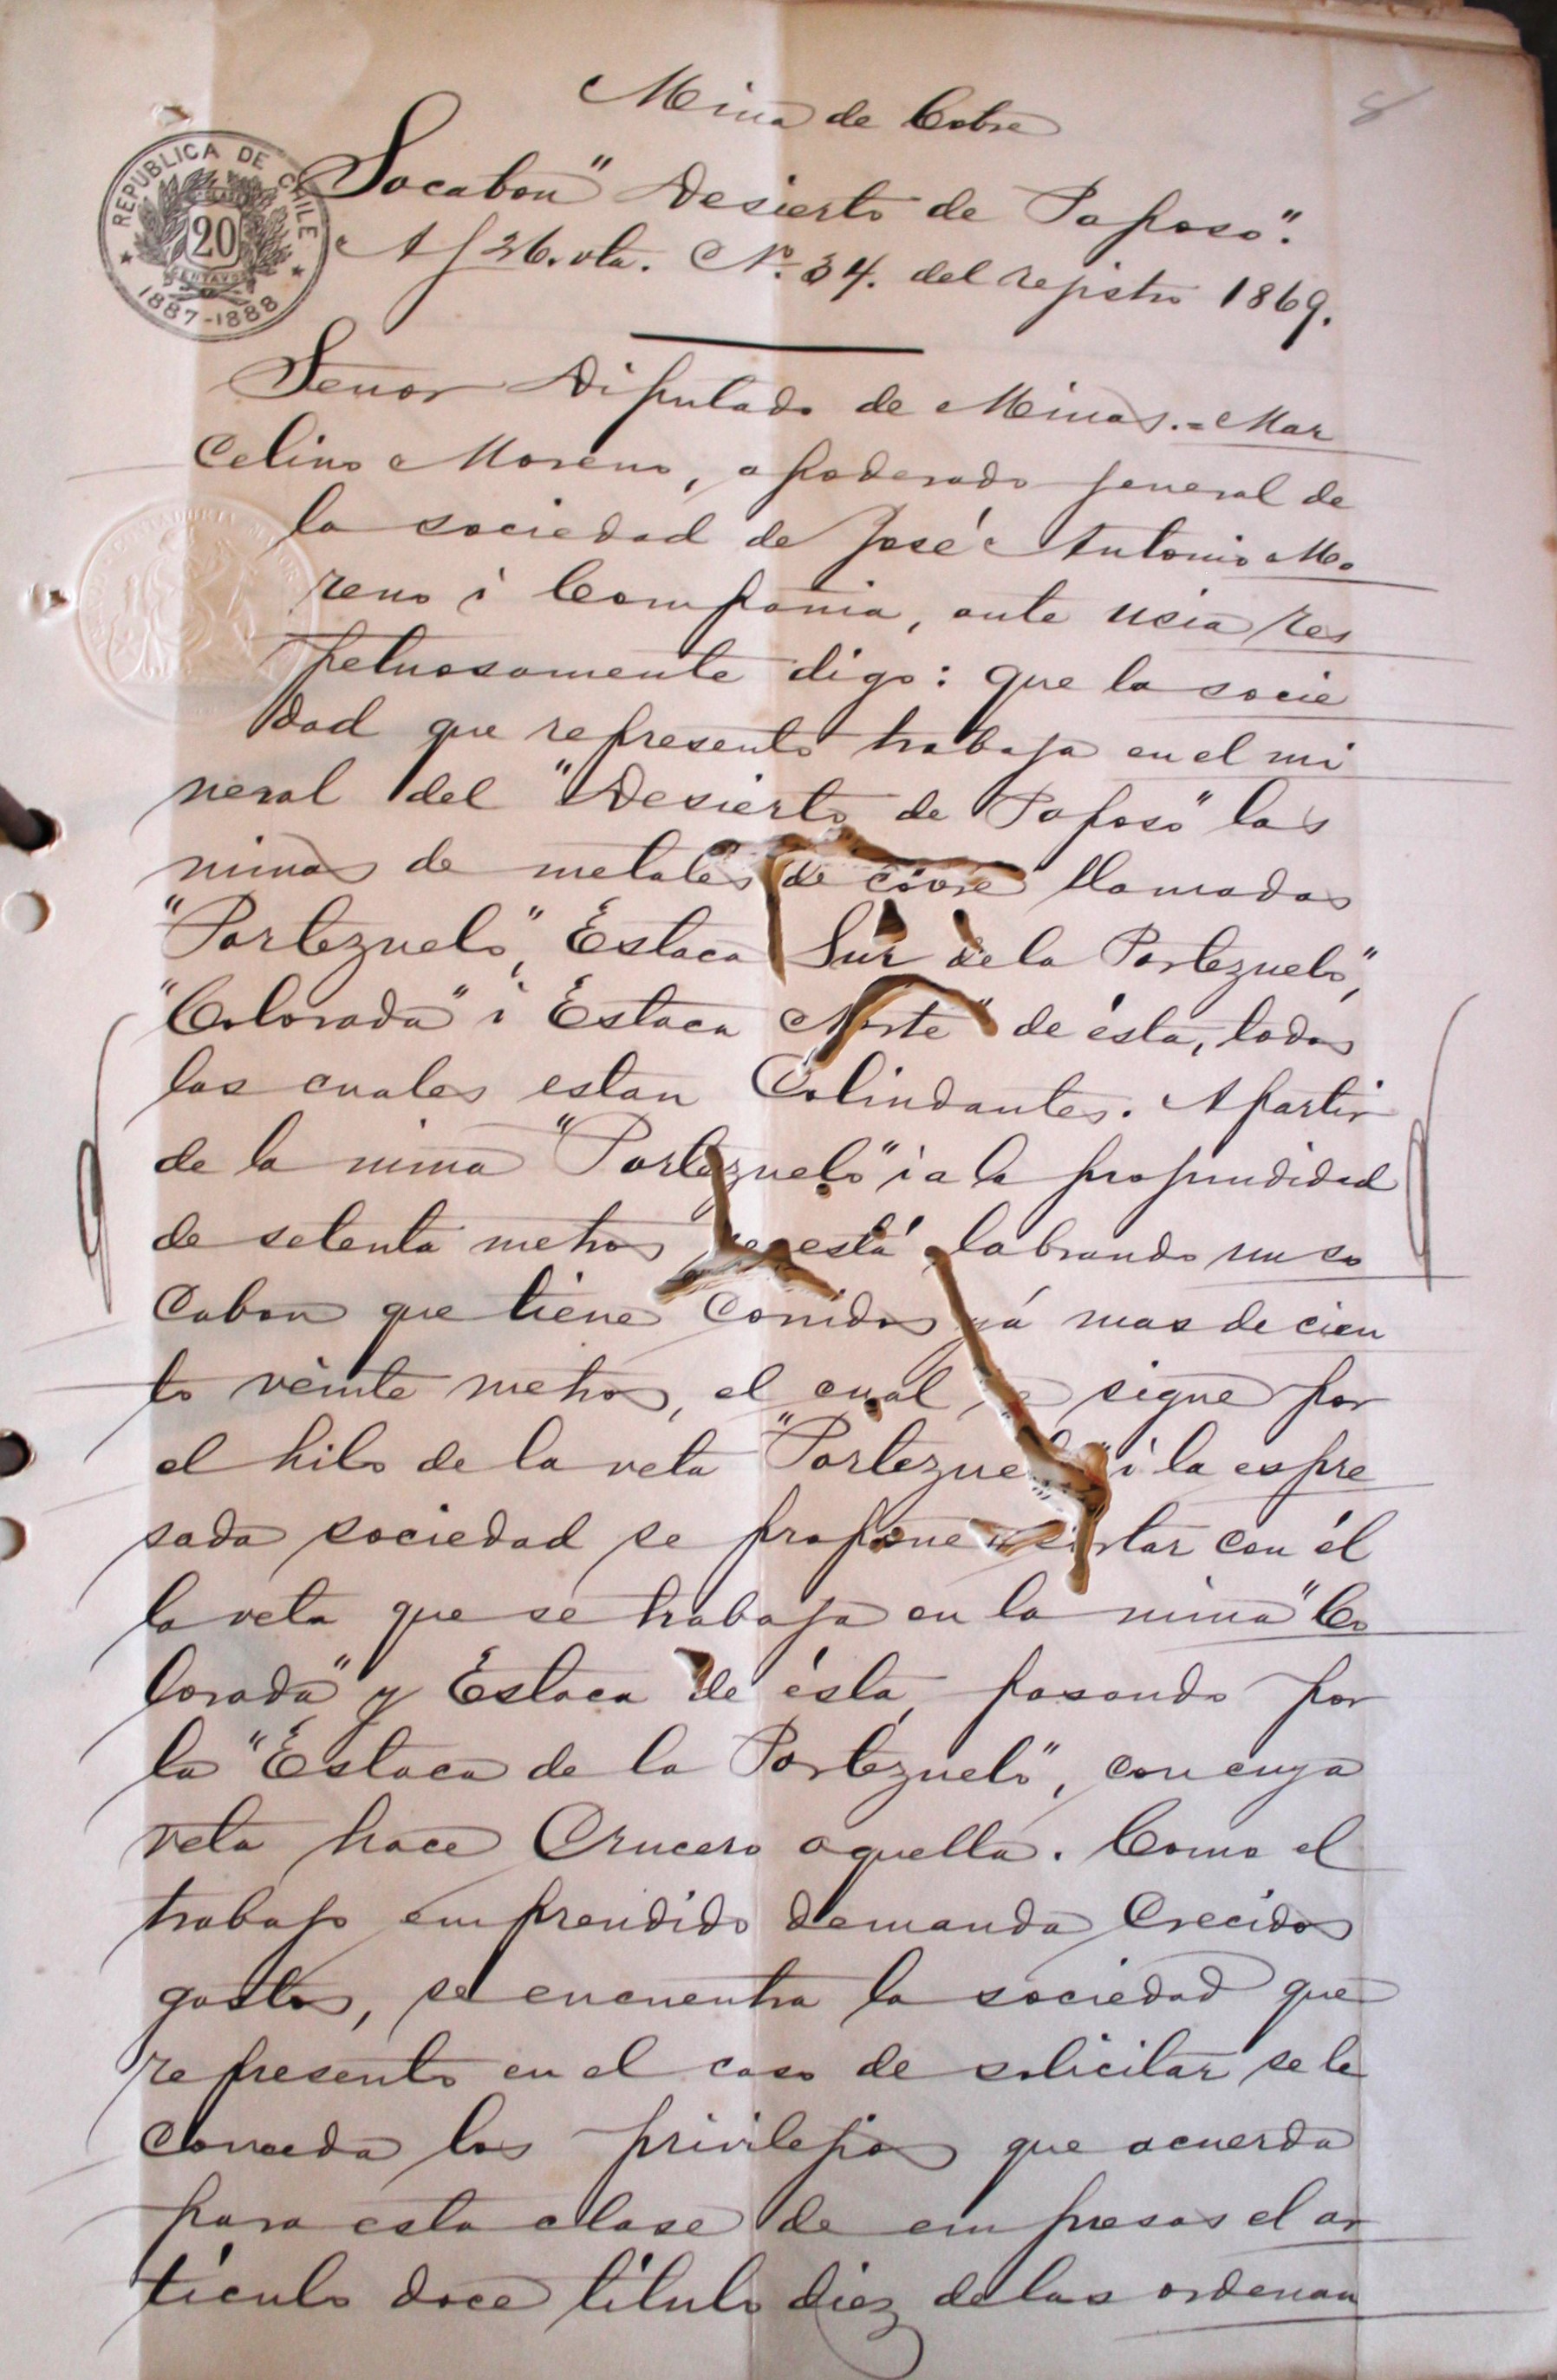 8
Mina de Cobre
Socabon "Desierto de Paposo".
A f 26. vta. Nº 34. del rejistro 1869.
REPUBLICA DE CHILE
20
CENTAVOS
1887-1888
Señor Diputado de Minas.=Mar
celino Moreno, apoderado jeneral de
la sociedad de José Antonio Mo
reno i Compañia, ante usia res
petuosamente digo: que la socie
dad que represento trabaja en el mi
neral del "Desierto de Paposo" las
minas de metales de cobre llamadas
"Portezuelo", Estaca Sur de la Portezuelo",
"Colorada" i Estaca Norte" de ésta, todas
las cuales estan Colindantes. A partir
de la mina "Portezuelo" i a la profundidad
de setenta metros se está labrando un so
cabon que tiene corridos yá mas de cien
to veinte metros, el cual se sigue por
el hilo de la veta "Portezuelo" i la espre
sada sociedad se propone cortar con él
la veta que se trabaja en la mina "Co
lorada" y Estaca de ésta, pasando por
la "Estaca de la Portezuelo", con cuya
veta hace Crucero aquella. Como el
trabajo emprendido demanda Crecidos
gastos, se encuentra la sociedad que
represento en el caso de solicitar se le
Conceda los privilejios que acuerda
para esta clase de empresas el ar
tículo doce título diez de las ordenan